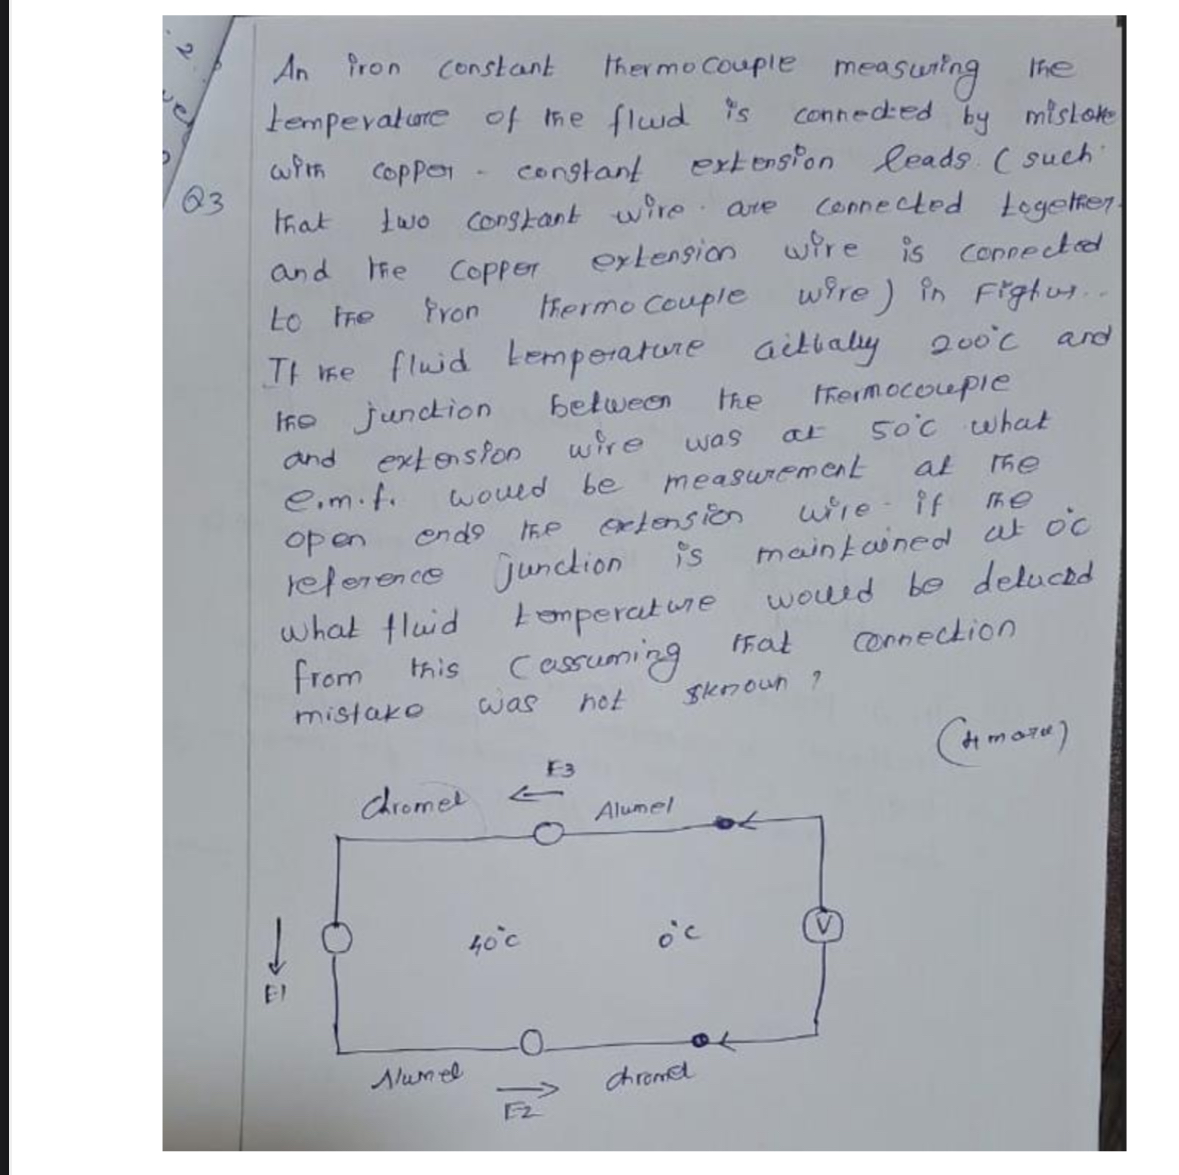 An iron constant thermocouple measuring the
temperature of the fluid is connected by mistake
with copper - constant extension leads. (such
Q3
that two constant wire are connected together
and the copper extension wire is connected
to the iron thermocouple wire) in
If the fluid temperature actually 200°C and
the junction between the thermocouple
and extension wire was at 50°C what
e.m.f. would be measurement at the
open ends the extension wire if the
reference junction is maintained at 0°C
what fluid temperature would be
from this (assuming that connection
mistake was not
(4 mark)
E3
Chromel
Alumel
V
40°C
0°C
E1
Alumel
chromel
E2